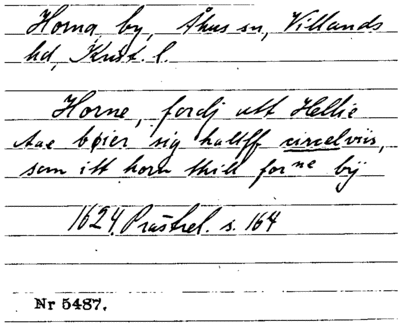 Horna by, Åhus sn, Villands
hd, Krist. l.
Horne, fordj att Hellie
aae bøier sig halff circelviis,
som itt horn thill forne bÿ
1624. Prästrel. s. 164
Nr 5487.